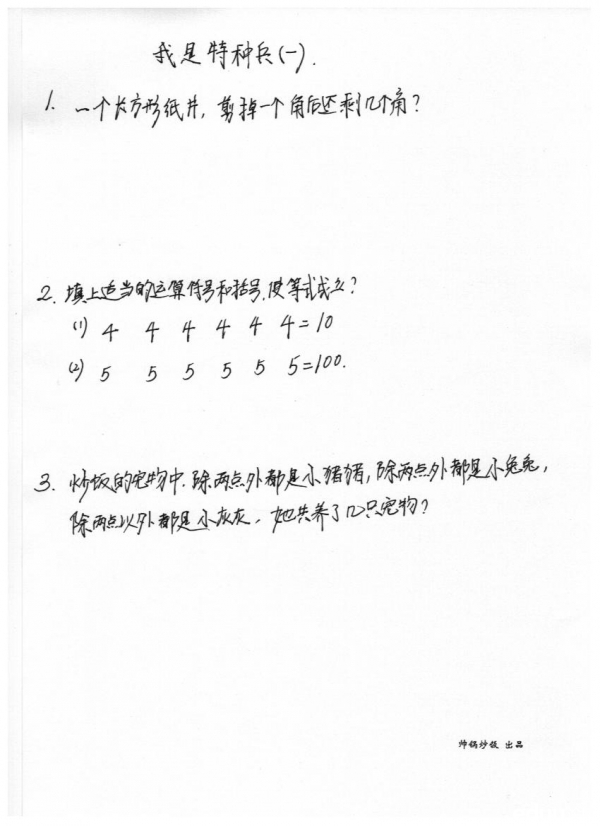 我是特种兵(一).
1. 一个长方形纸片, 剪掉一个角后还剩几个角?
2. 填上适当的运算符号和括号, 使等式成立?
(1) 4 4 4 4 4 4=10
(2) 5 5 5 5 5 5=100.
3. 炒饭的宠物中. 除两点外都是小猪猪, 除两点外都是小兔兔,
除两点以外都是小灰灰, 她共养了几只宠物?
帅锅炒饭 出品